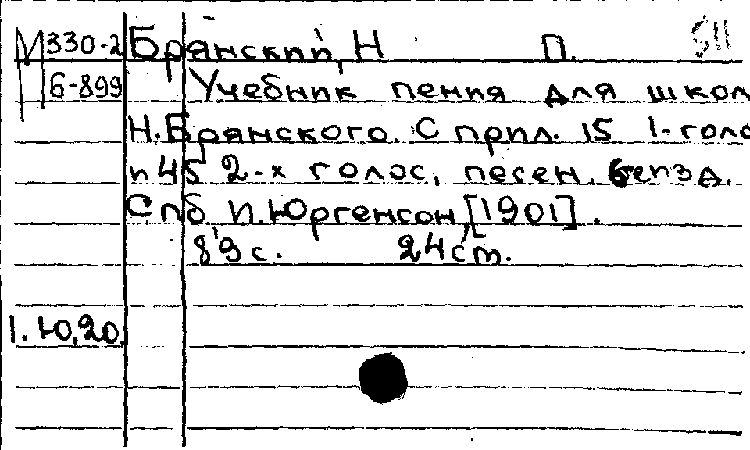 М 330-2 Брянский, Н П. 511
6-899 Учебник пения для школ
Н. Брянского. С прил. 15 1-голо
и 45 2-х голос, песен. 6е изд.
Спб, П. Юргенсон, [1901].
89 с. 24 см.
1. Ю, 20.